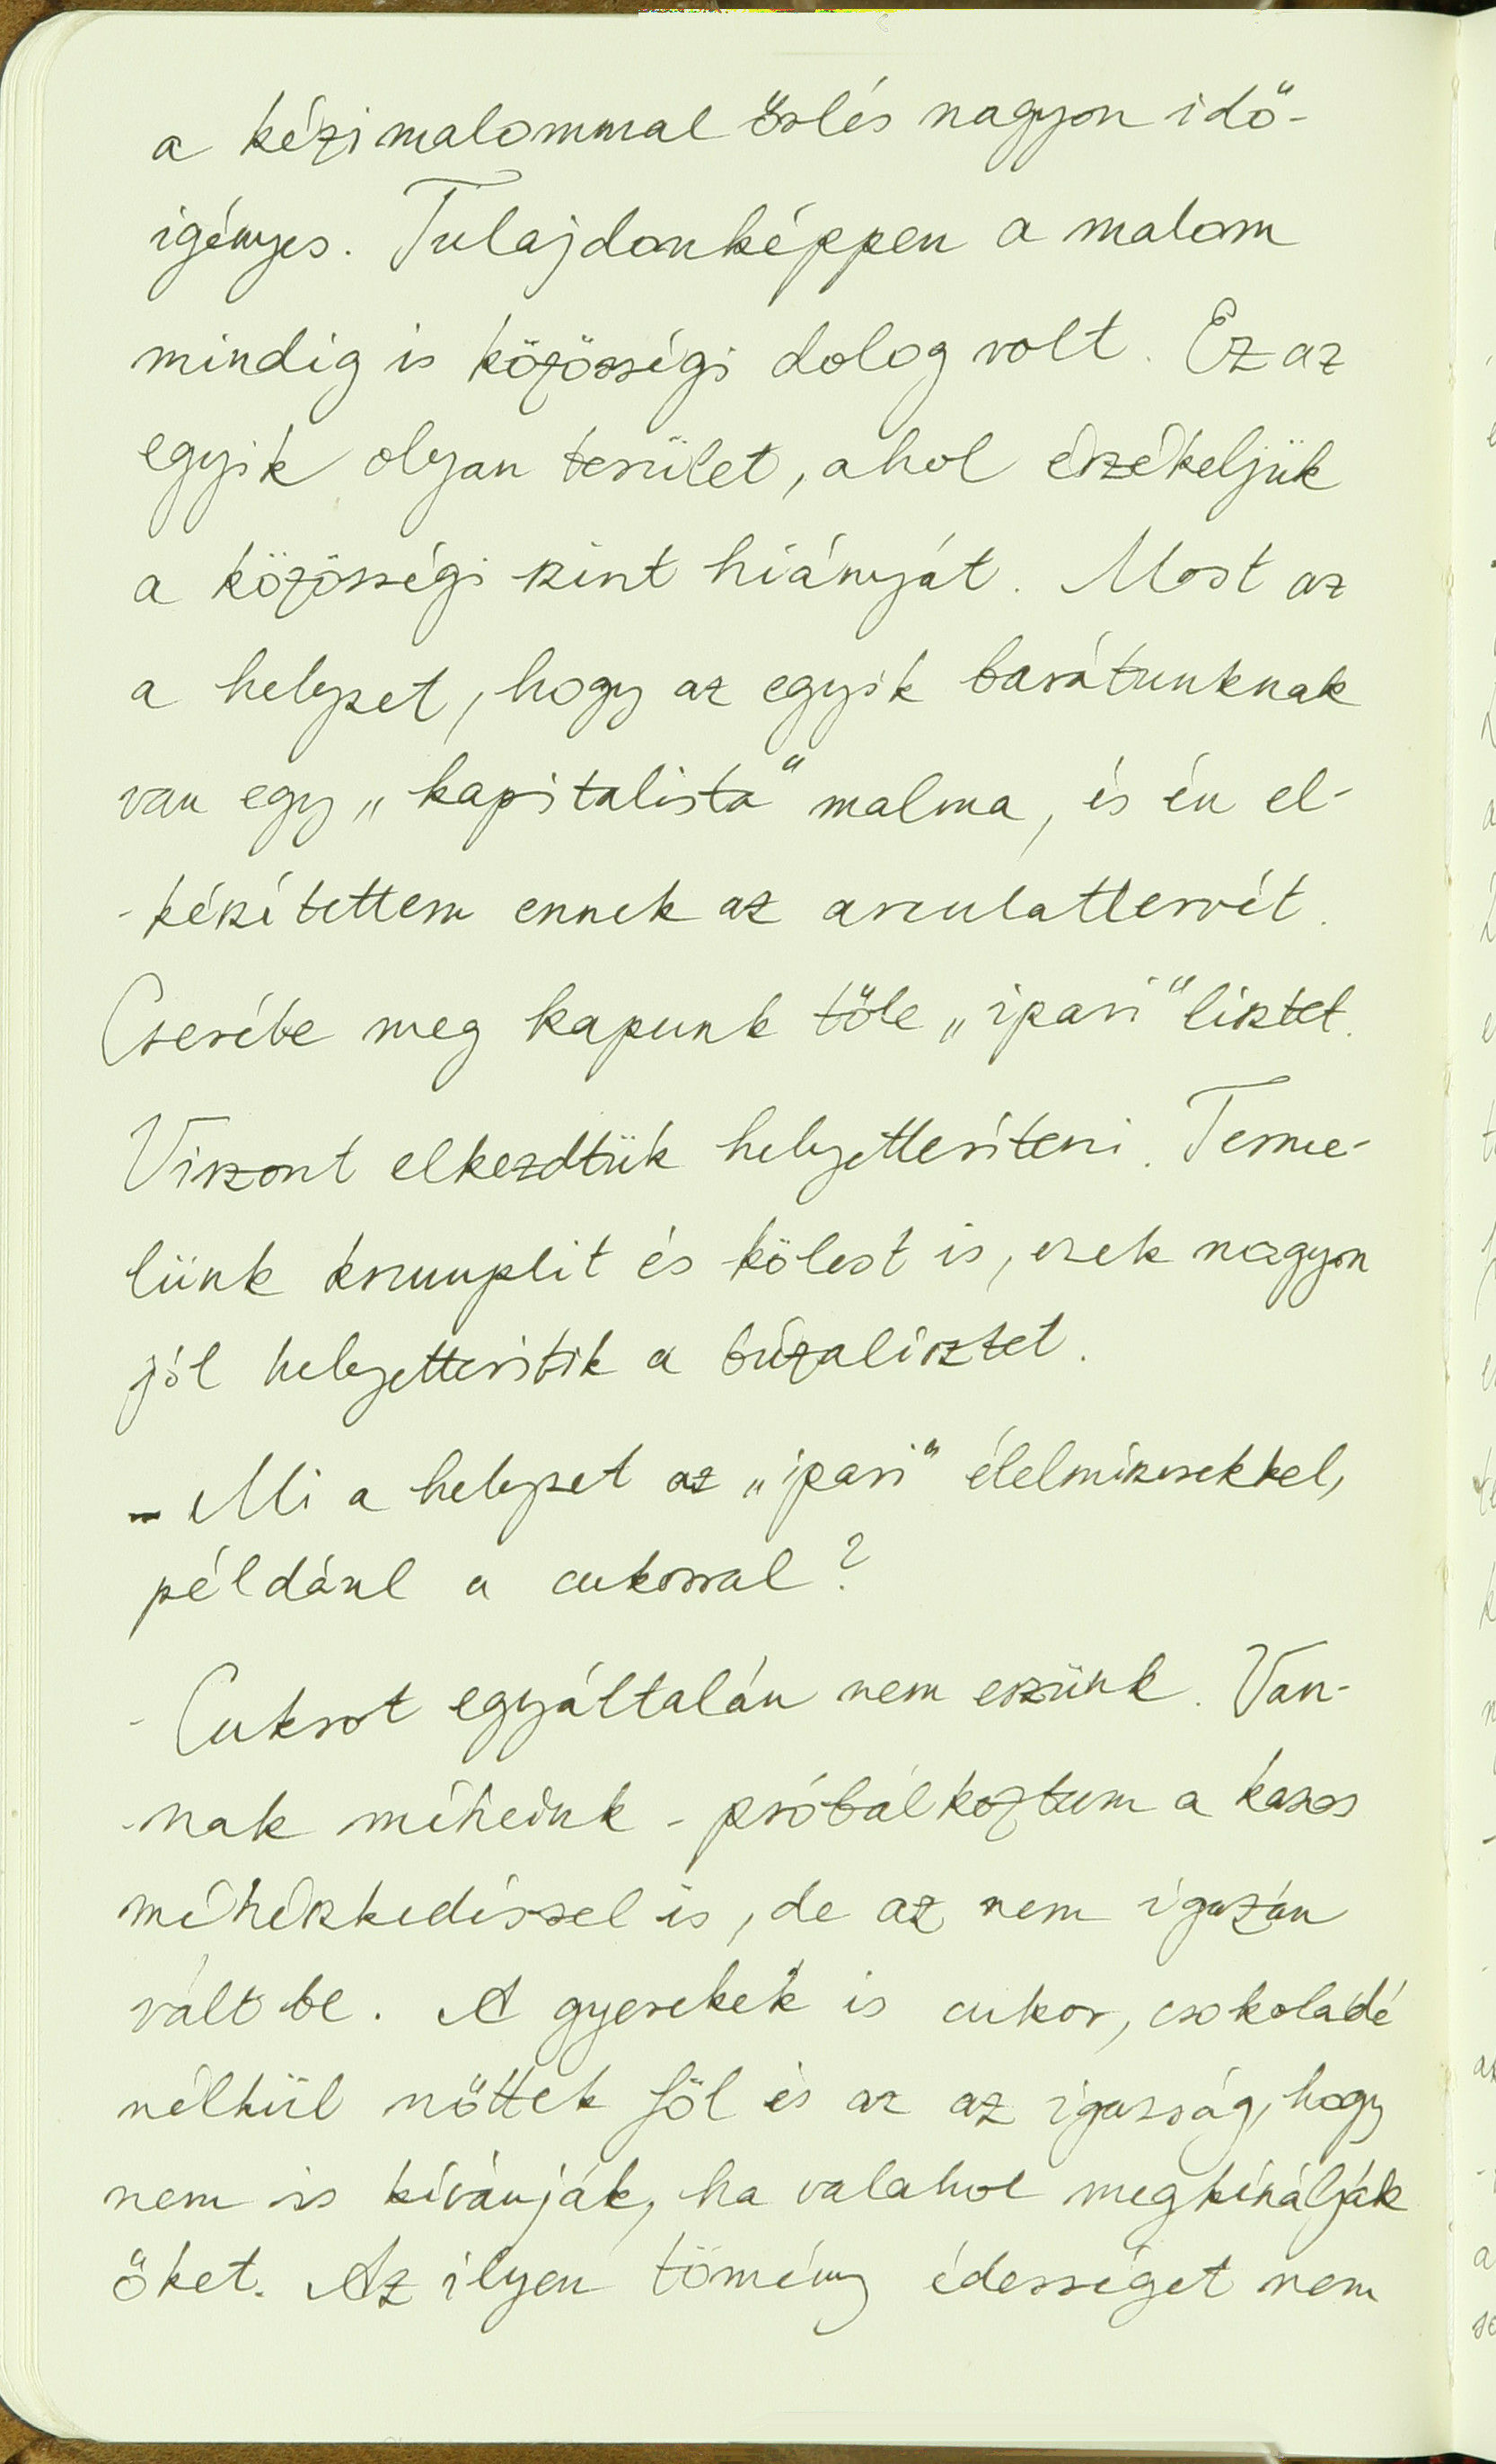 a kézimalommal őrlés nagyon idő-
igényes. Tulajdonképpen a malom
mindig is közösségi dolog volt. Ez az
egyik olyan terület, ahol érzékeljük
a közösségi szint hiányát. Most az
a helyzet, hogy az egyik barátunknak
van egy „kapitalista" malma, és én el-
-készítettem ennek az arculattervét.
Cserébe meg kapunk tőle „ipari" lisztet.
Viszont elkezdtük helyettesíteni. Terme-
lünk krumplit és kölest is, ezek nagyon
jól helyettesítik a búzalisztet.
- Mi a helyzet az „ipari" élelmiszerekkel,
például a cukorral?
- Cukrot egyáltalán nem eszünk. Van-
-nak méheink - próbálkoztam a kasos
méhészkedéssel is, de az nem igazán
vált be. A gyerekek is cukor, csokoládé
nélkül nőttek föl és az az igazság, hogy
nem is kívánják, ha valahol megkínálják
őket. Az ilyen tömény édességet nem